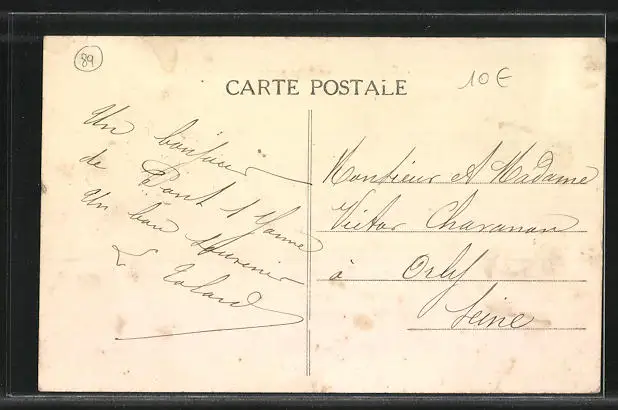 89
CARTE POSTALE
10€
Un bonjour
de Pont s/ Yonne
Un bon Souvenir
Monsieur et Madame
Victor Chavanon
à Orly
Seine